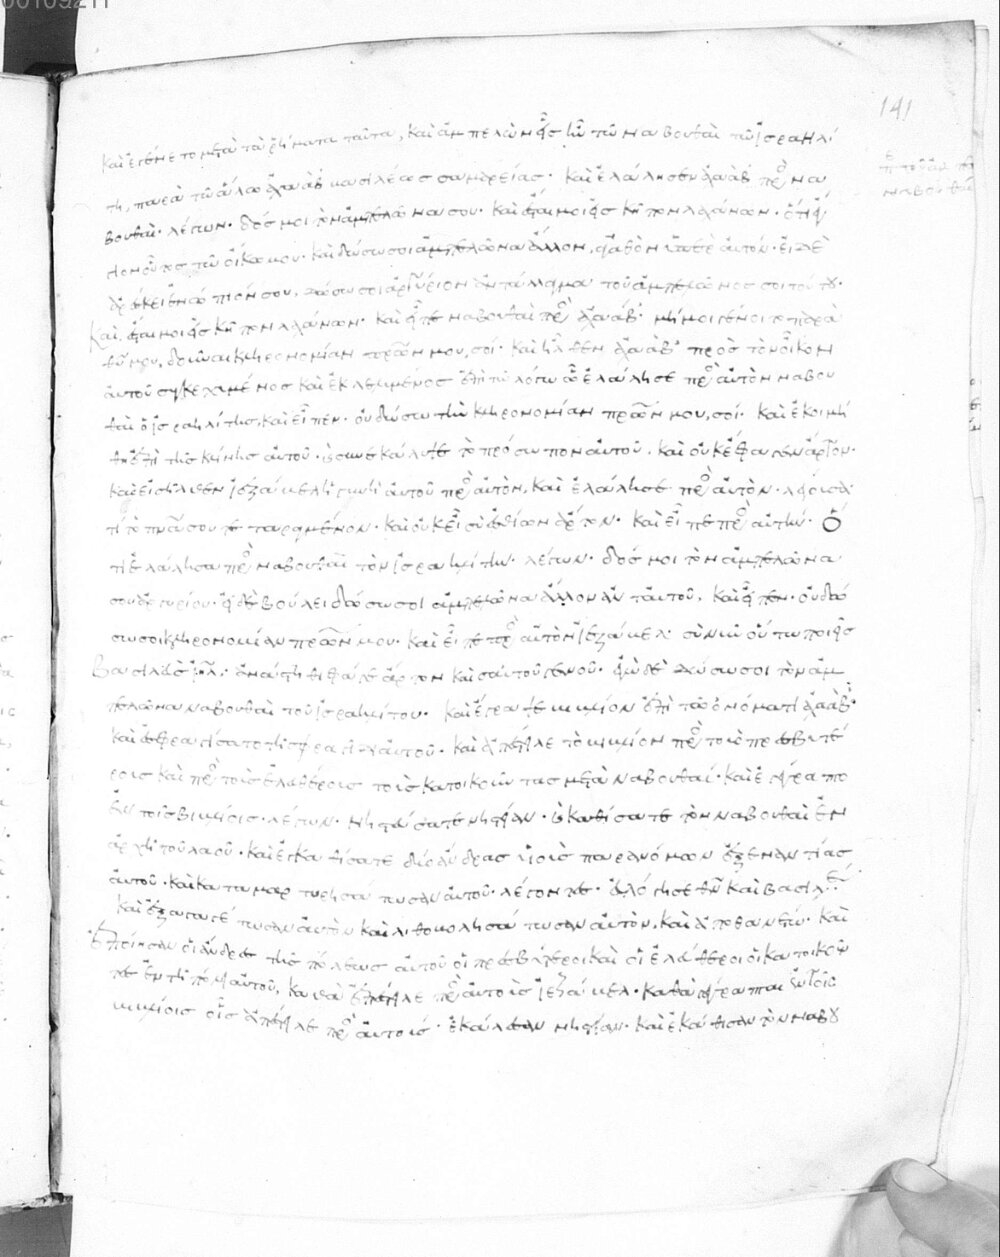 141
καὶ ἐγένετο μετὰ τὰ ῥήματα ταῦτα, καὶ ἀμπελὼν εἷς ἦν τῷ ναβουθαὶ τῷ ἰσραηλί
τῃ, παρὰ τῷ ἅλῳ ἀχαὰβ βασιλέως σαμαρείας. καὶ ἐλάλησεν ἀχαὰβ πρὸς να
βουθαὶ λέγων. δός μοι τὸν ἀμπελῶνα σου. καὶ ἔσται μοι εἰς κῆπον λαχάνων. ὅτι ἐγ
γίων οὗτος τῷ οἴκῳ μου. καὶ δώσω σοι ἀμπελῶνα ἄλλον, ἀγαθὸν ὑπὲρ αὐτόν. εἰ δὲ
ἀρέσκει ἐνώπιόν σου, δώσω σοι ἀργύριον ἀντάλλαγμα τοῦ ἀμπελῶνος σου τούτου.
Καὶ ἔσται μοι εἰς κῆπον λαχάνων. καὶ εἶπε ναβουθαὶ πρὸς ἀχαάβ. μή μοι γένοιτο παρὰ
θεοῦ μου, δοῦναι κληρονομίαν πατέρων μου, σοί. καὶ ἦλθεν ἀχαὰβ πρὸς τὸν οἶκον
αὐτοῦ συγκεχυμένος καὶ ἐκλελυμένος ἐπὶ τῷ λόγῳ ᾧ ἐλάλησε πρὸς αὐτὸν ναβου
θαὶ ὁ ἰσραηλίτης, καὶ εἶπεν. οὐ δώσω τὴν κληρονομίαν πατέρων μου, σοί. καὶ ἐκοιμή
θη ἐπὶ τῆς κλίνης αὐτοῦ. καὶ συνεκάλυψε τὸ πρόσωπον αὐτοῦ. καὶ οὐκ ἔφαγεν ἄρτον.
καὶ εἰσῆλθεν ἰεζάβελ ἡ γυνὴ αὐτοῦ πρὸς αὐτὸν, καὶ ἐλάλησε πρὸς αὐτὸν.
τί τὸ πνεῦμα σου τεταραγμένον. καὶ οὐκ εἶ σὺ ἐσθίων ἄρτον. καὶ εἶπε πρὸς αὐτήν. Ὅ
τι ἐλάλησα πρὸς ναβουθαὶ τὸν ἰσραηλίτην. λέγων. δός μοι τὸν ἀμπελῶνα
σου ἀργυρίου. εἰ δὲ βούλει δώσω σοι ἀμπελῶνα ἄλλον ἀντ αὐτοῦ. καὶ εἶπεν. οὐ δώ
σω σοι κληρονομίαν πατέρων μου. καὶ εἶπε πρὸς αὐτὸν ἰεζάβελ. σὺ νῦν οὕτω ποιεῖς
Βασιλέα ἰσραήλ. ἀνάστηθι φάγε ἄρτον καὶ σαυτοῦ γενοῦ. ἐγὼ δὲ δώσω σοι τὸν ἀμ
πελῶνα ναβουθαὶ τοῦ ἰσραηλίτου. καὶ ἔγραψε βιβλίον ἐπὶ τῷ ὀνόματι ἀχαάβ.
καὶ ἐσφραγίσατο τῇ σφραγῖδι αὐτοῦ. καὶ ἀπέστειλε τὸ βιβλίον πρὸς τοὺς πρεσβυτέ
ροις καὶ πρὸς τοῖς ἐλευθέροις τοῖς κατοικοῦντας μετὰ ναβουθαί. καὶ ἐγέγραπτο
ἐν τοῖς βιβλίοις. λέγων. νηστεύσατε νηστείαν. καὶ καθίσατε τὸν ναβουθαὶ ἐν
ἀρχῇ τοῦ λαοῦ. καὶ ἐγκαθίσατε δύο ἄνδρας υἱοὺς παρανόμων ἐξεναντίας
αὐτοῦ. καὶ καταμαρτυρησάτωσαν αὐτοῦ. λέγοντες. εὐλόγησε θεὸν καὶ βασιλέα.
καὶ ἐξαγαγέτωσαν αὐτὸν καὶ λιθοβολησάτωσαν αὐτὸν, καὶ ἀποθανέτω. καὶ
ἐποίησαν οἱ ἄνδρες τῆς πόλεως αὐτοῦ οἱ πρεσβύτεροι καὶ οἱ ἐλεύθεροι οἱ κατοικοῦν
τες ἐν τῇ πόλει αὐτοῦ, καθὰ ἀπέστειλε πρὸς αὐτοὺς ἰεζάβελ. καθὰ γέγραπται ἐν τοῖς
βιβλίοις οἷς ἀπέστειλε πρὸς αὐτούς. ἐκάλεσαν νηστείαν. καὶ ἐκάθισαν τὸν ναβου